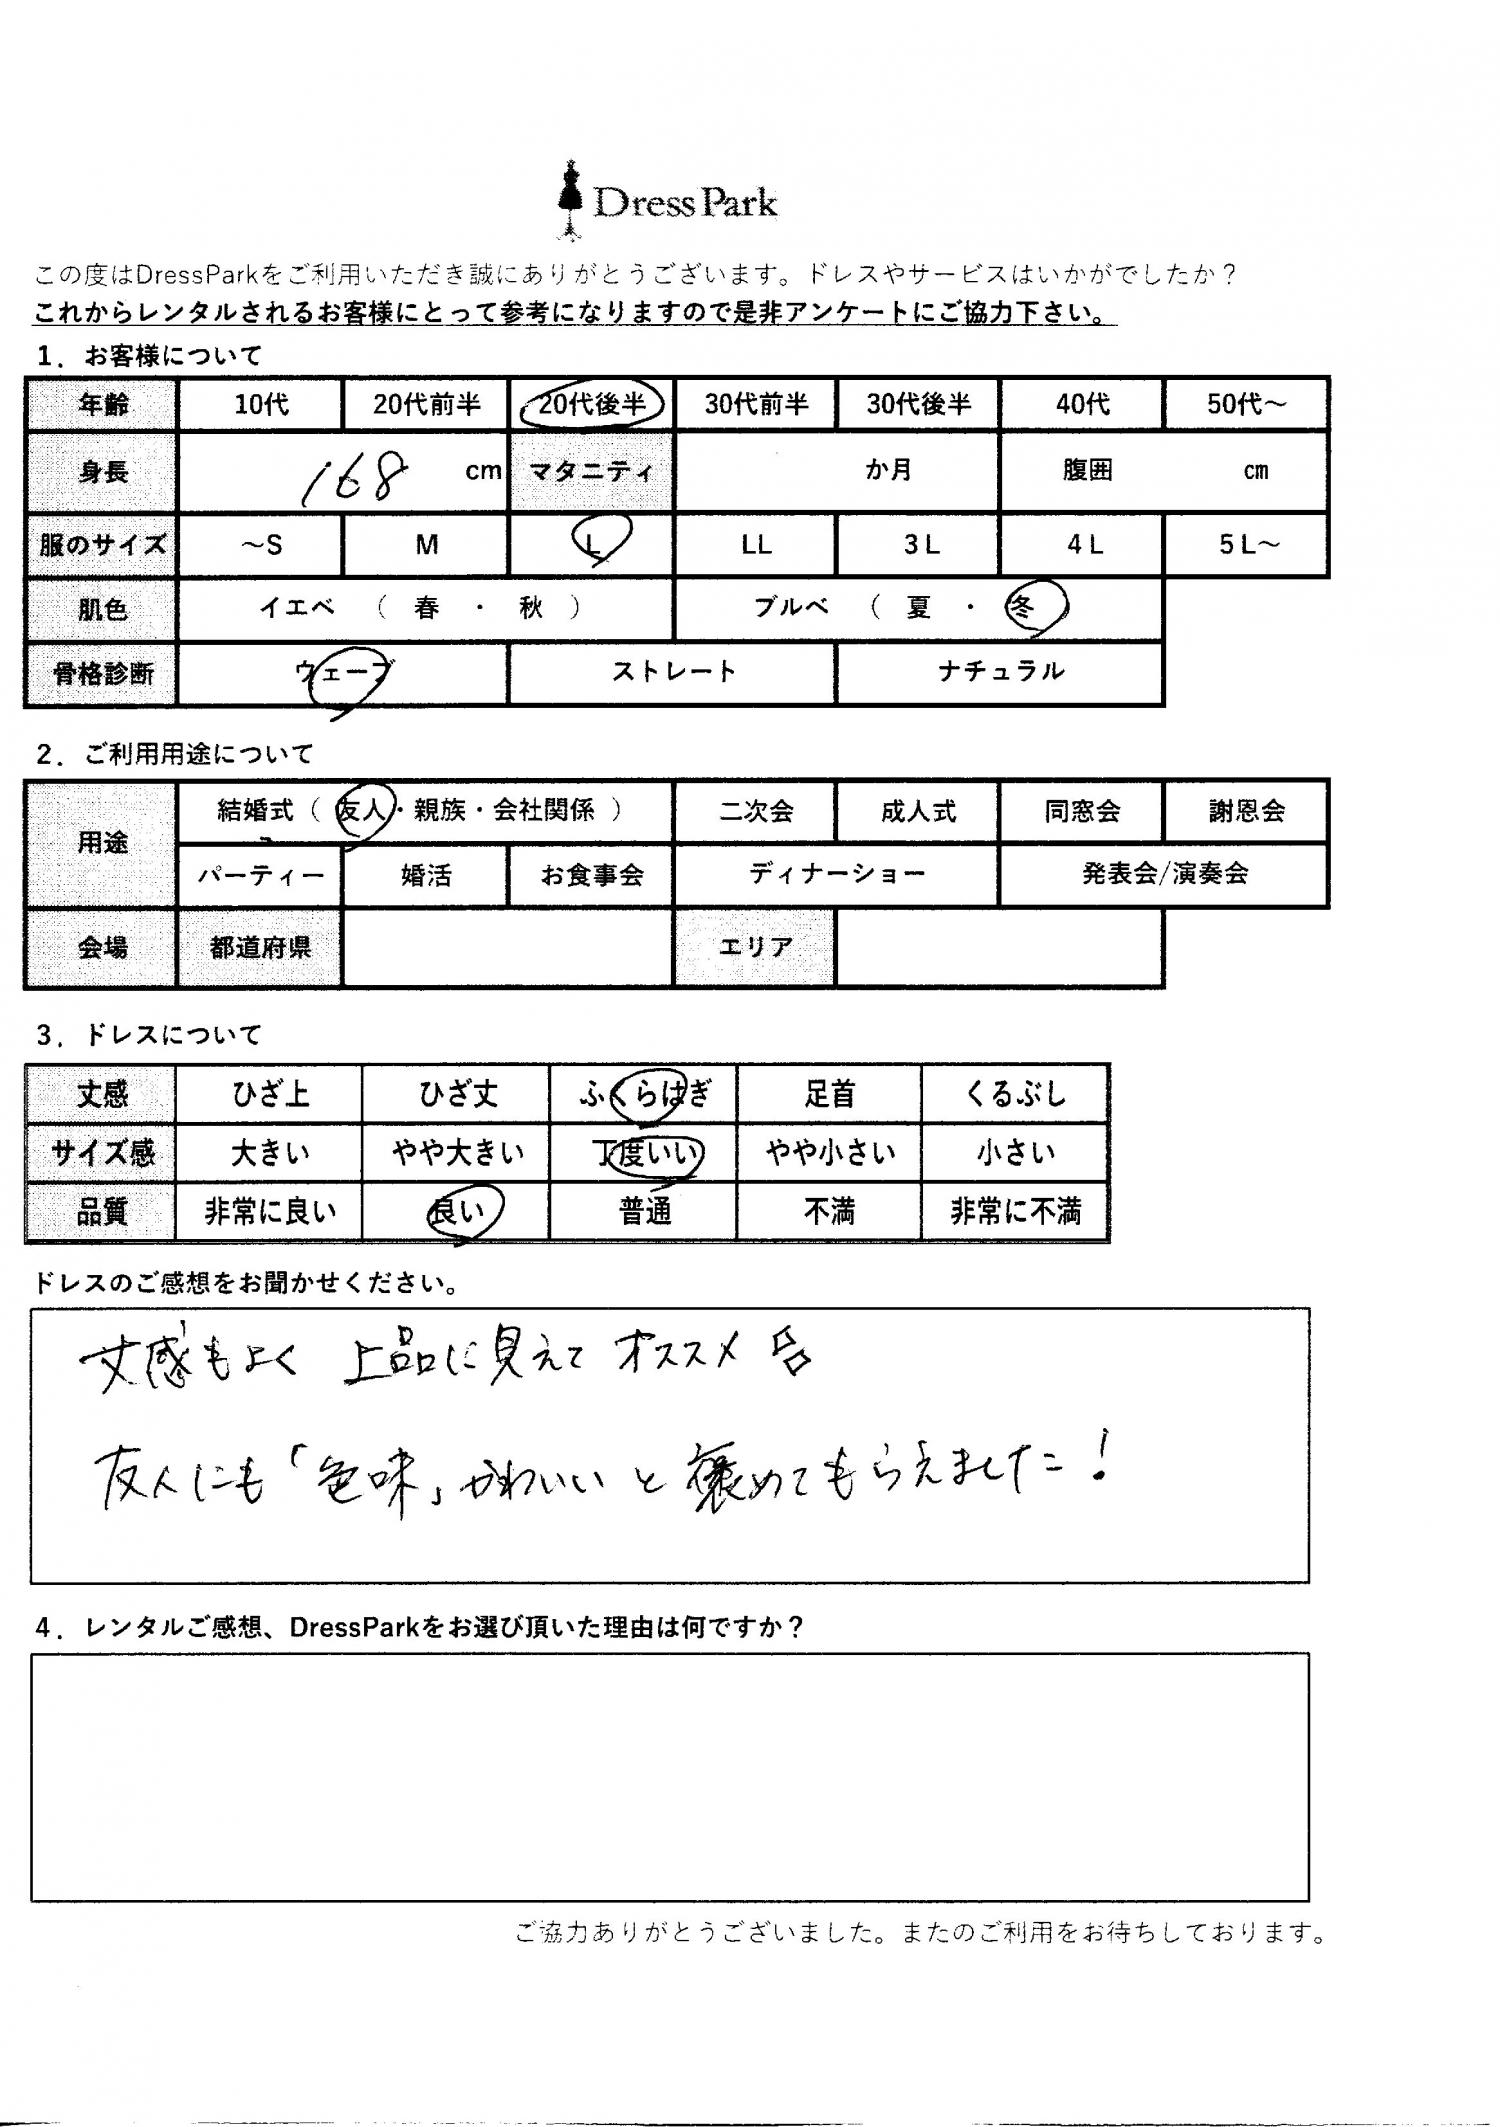 Dress Park
この度はDressParkをご利用いただき誠にありがとうございます。ドレスやサービスはいかがでしたか？
これからレンタルされるお客様にとって参考になりますので是非アンケートにご協力下さい。
1．お客様について
年齢 10代 20代前半 20代後半 30代前半 30代後半 40代 50代～
身長 168 cm マタニティ か月 腹囲 cm
服のサイズ ～S M L LL 3L 4L 5L～
肌色 イエベ （ 春 ・ 秋 ） ブルベ （ 夏 ・ 冬 ）
骨格診断 ウェーブ ストレート ナチュラル
2．ご利用用途について
用途 結婚式（ 友人・親族・会社関係 ） 二次会 成人式 同窓会 謝恩会
パーティー 婚活 お食事会 ディナーショー 発表会/演奏会
会場 都道府県 エリア
3．ドレスについて
丈感 ひざ上 ひざ丈 ふくらはぎ 足首 くるぶし
サイズ感 大きい やや大きい 丁度いい やや小さい 小さい
品質 非常に良い 良い 普通 不満 非常に不満
ドレスのご感想をお聞かせください。
丈感もよく 上品に見えて オススメ
友人にも「色味」かわいいと褒めてもらえました！
4．レンタルご感想、DressParkをお選び頂いた理由は何ですか？
ご協力ありがとうございました。またのご利用をお待ちしております。